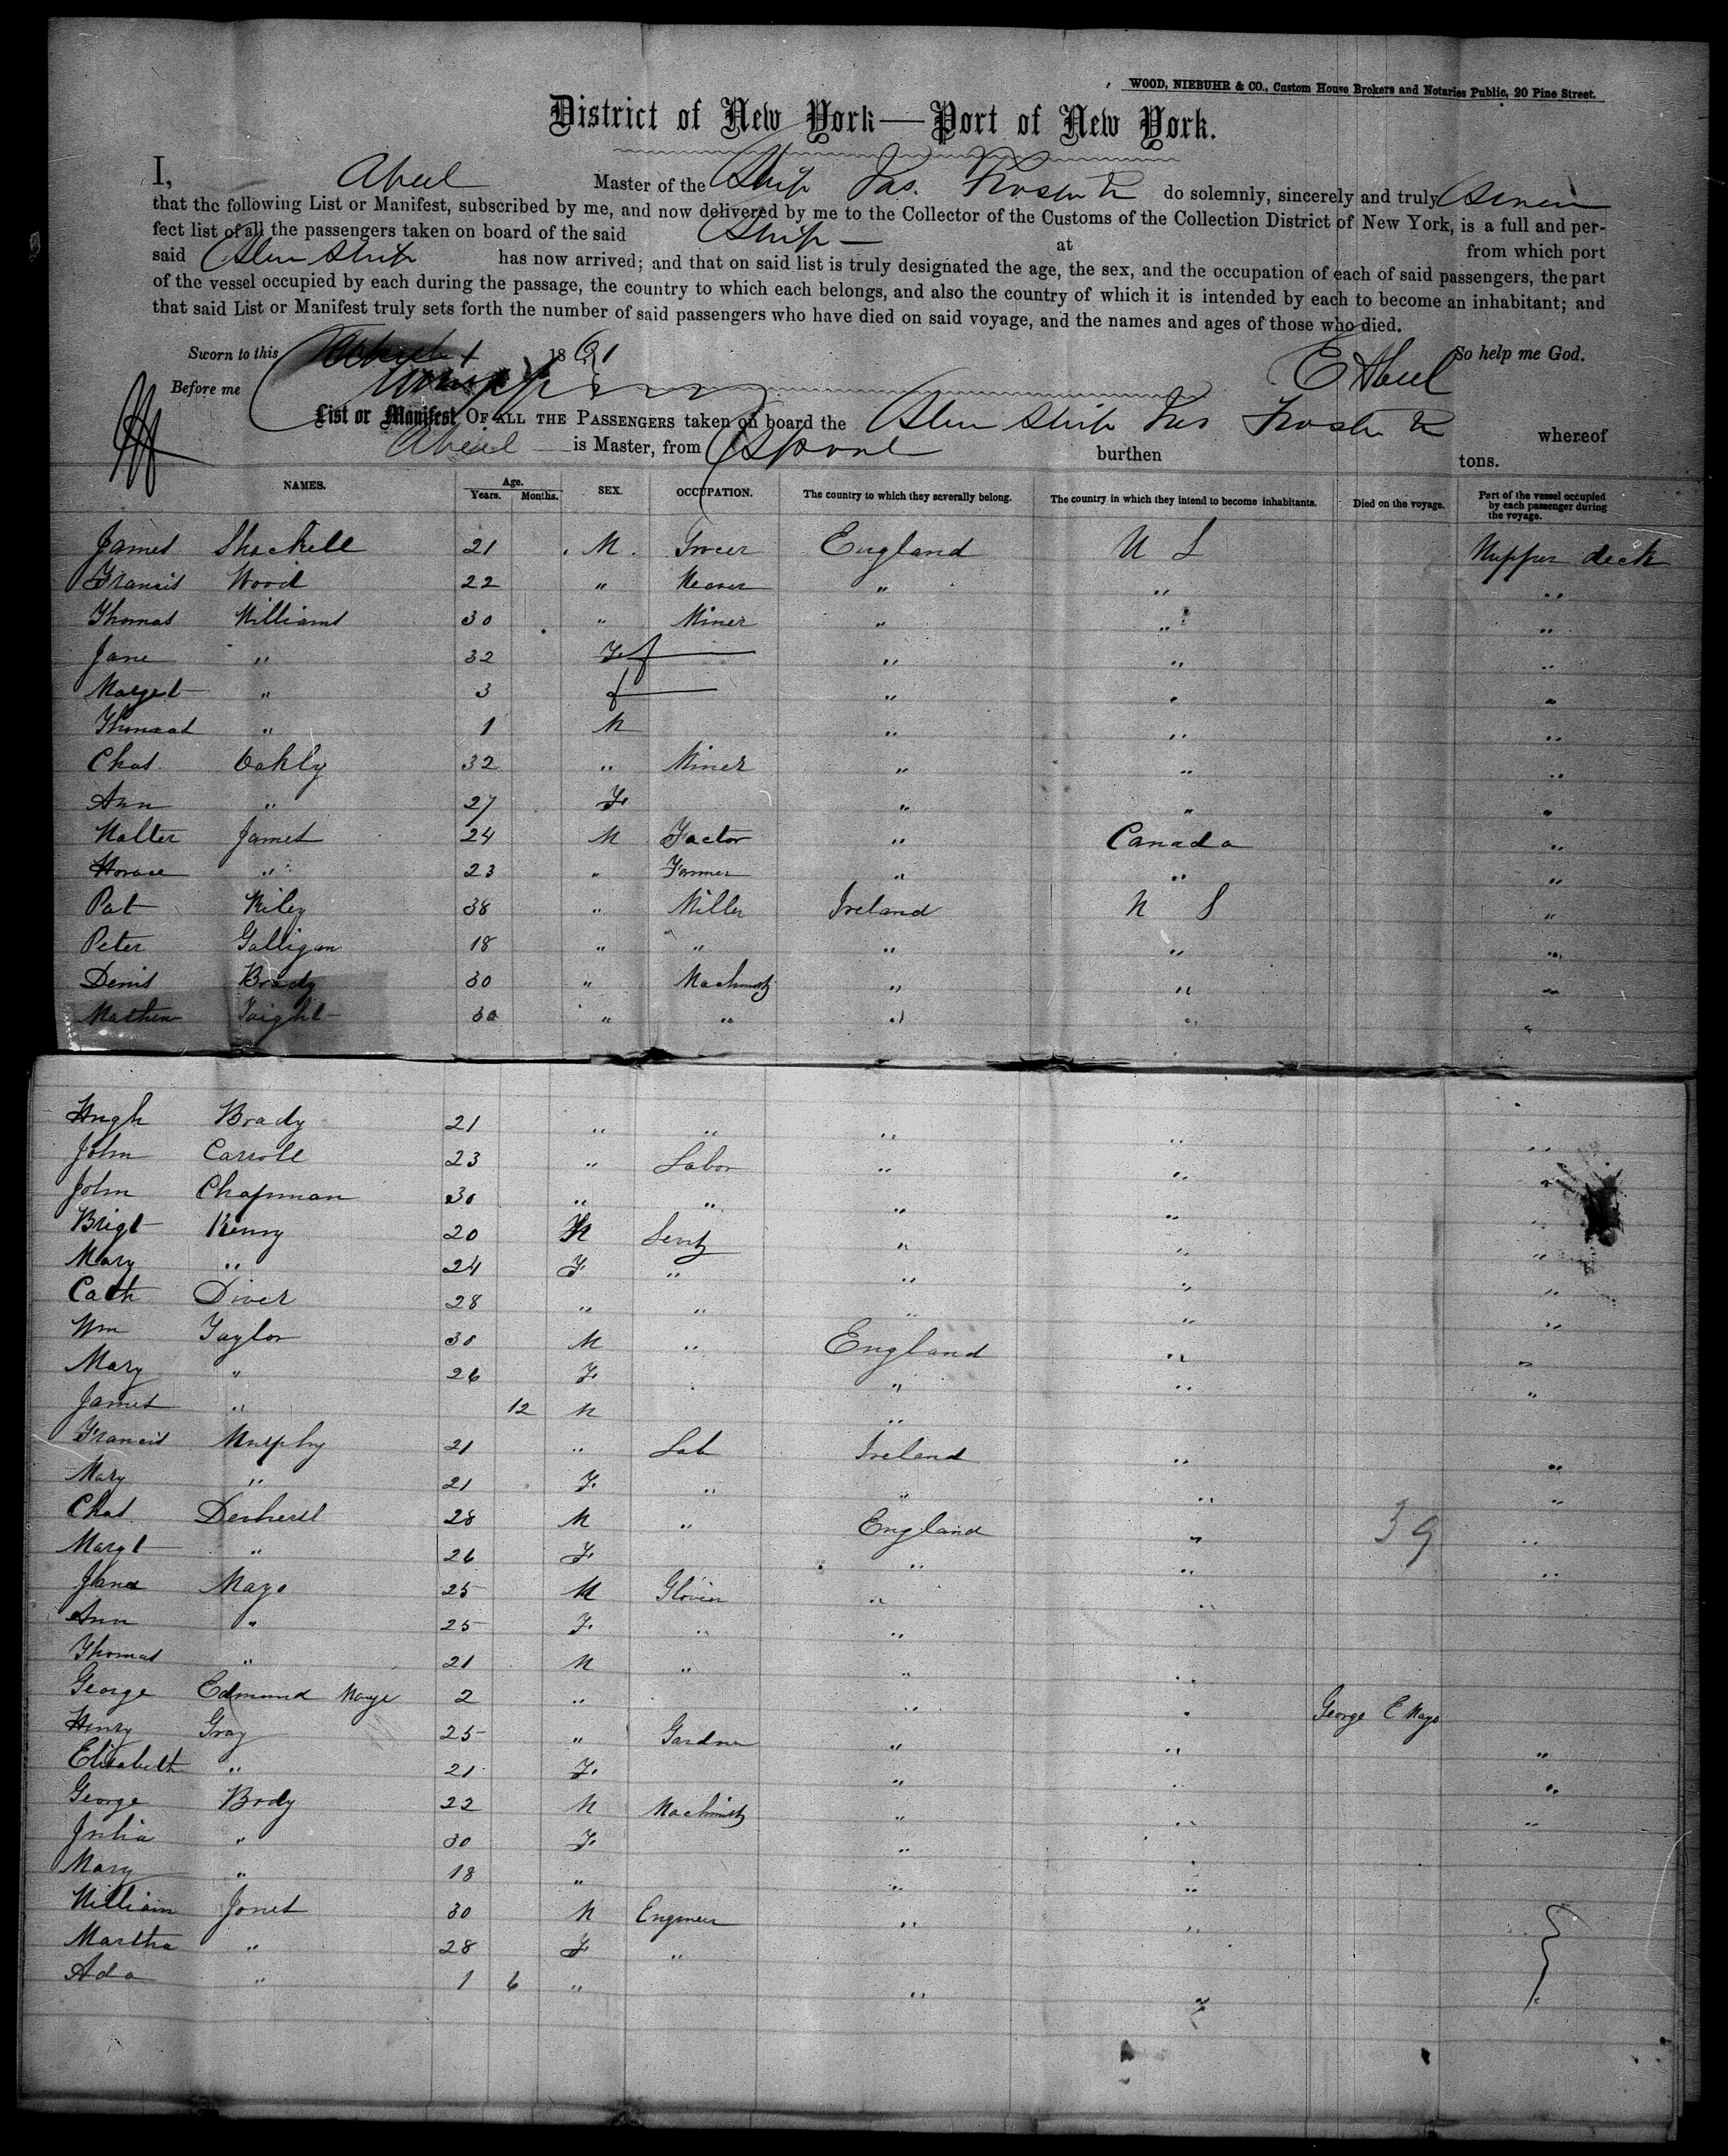 WOOD, NIEBUHR & CO., Custom House Brokers and Notaries Public, 20 Pine Street.
District of New York—Port of New York.
I, Abeel Master of the Ship Jas. Foster Jr do solemnly, sincerely and truly
that the following List or Manifest, subscribed by me, and now delivered by me to the Collector of the Customs of the Collection District of New York, is a full and per-
fect list of all the passengers taken on board of the said Ship — at from which port
said Ship has now arrived; and that on said list is truly designated the age, the sex, and the occupation of each of said passengers, the part
of the vessel occupied by each during the passage, the country to which each belongs, and also the country of which it is intended by each to become an inhabitant; and
that said List or Manifest truly sets forth the number of said passengers who have died on said voyage, and the names and ages of those who died.
Sworn to this 1861 So help me God.
Before me E Abeel
List or Manifest OF ALL THE PASSENGERS taken on board the Ship Jas Foster Jr whereof
Abeel is Master, from burthen tons.
NAMES. Age. Years. Months. SEX. OCCUPATION. The country to which they severally belong. The country in which they intend to become inhabitants. Died on the voyage. Part of the vessel occupied by each passenger during the voyage.
James Shackell 21 M. Grocer England U S Uppper deck
Francis Wood 22 " " " "
Thomas Williams 30 " Miner " " "
Jane " 32 F " " "
Marget " 3 f " " "
Thomas " 1 M " " "
Chas. Oakly 32 " Miner " " "
Ann " 27 F " " "
Walter James 24 M Factor " Canada "
Horace " 23 " Farmer " " "
Pat Riley 38 " Miller Ireland U S "
Peter Galligan 18 " " " " "
Denis Brady 30 " Machinist " " "
Mathew Taight 30 " " " " "
Hugh Brady 21 " " " " "
John Carroll 23 " Labor " " "
John Chapman 30 " " " " "
Brigt Kenny 20 M " " "
Mary " 24 F " " " "
Cath Diver 28 " " " " "
Wm Taylor 30 M " England " "
Mary " 26 F " " "
James " 12 M "
Francis Murphy 21 " Lab Ireland " "
Mary " 21 F " " " "
Chas. 28 M " England " 39 "
Margt " 26 F " " "
Mayo 25 M " "
Ann " 25 F " "
Thomas " 21 M " " "
George Edmund Mayo 2 " " " George E Mayo
Henry Gray 25 " Gardner " " "
Elisabeth " 21 F " " "
George Brody 22 M Machinist " " "
Julia " 30 F " "
Mary " 18 " " "
William Jones 30 M Engineer " "
Martha " 28 F "
Ada " 1 6 " " "